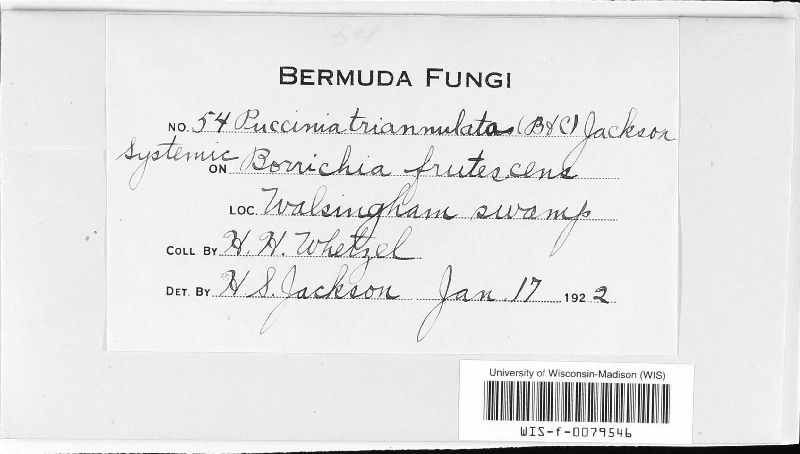 54
BERMUDA FUNGI
NO. 54 Puccinia triannulata (B&C) Jackson
Systemic
ON Borrichia frutescens
LOC. Walsingham swamp
COLL. BY H. H. Whetzel
DET. BY H S. Jackson Jan. 17 1922
University of Wisconsin-Madison (WIS)
WIS-f-0079546